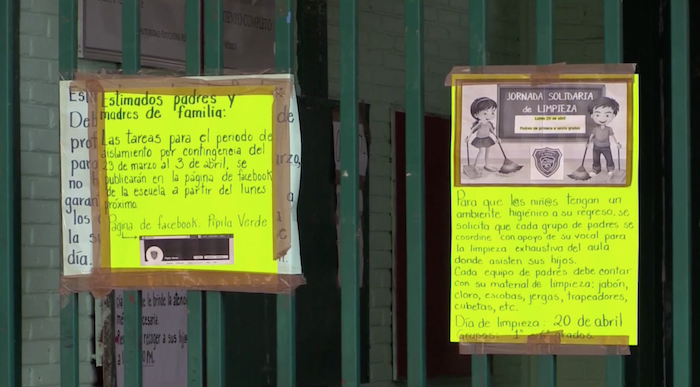 Estimados padres y
madres de familia:
Las tareas para el periodo de
aislamiento por contingencia del
23 de marzo al 3 de abril, se
publicarán en la página de facebook
de la escuela a partir del lunes
próximo.
Página de facebook. Pípila Verde
para
no
garan
los
la s
día.
JORNADA SOLIDARIA
de LIMPIEZA
Lunes 20 de abril
Padres de primero a sexto grado
Para que l@s niñ@s tengan un
ambiente higiénico a su regreso, se
solicita que cada grupo de padres se
coordine, con apoyo de su vocal para
la limpieza exhaustiva del aula
donde asisten sus hijos.
Cada equipo de padres debe contar
con su material de limpieza: jabón,
cloro, escobas, jergas, trapeadores,
cubetas, etc.
Día de limpieza: 20 de abril